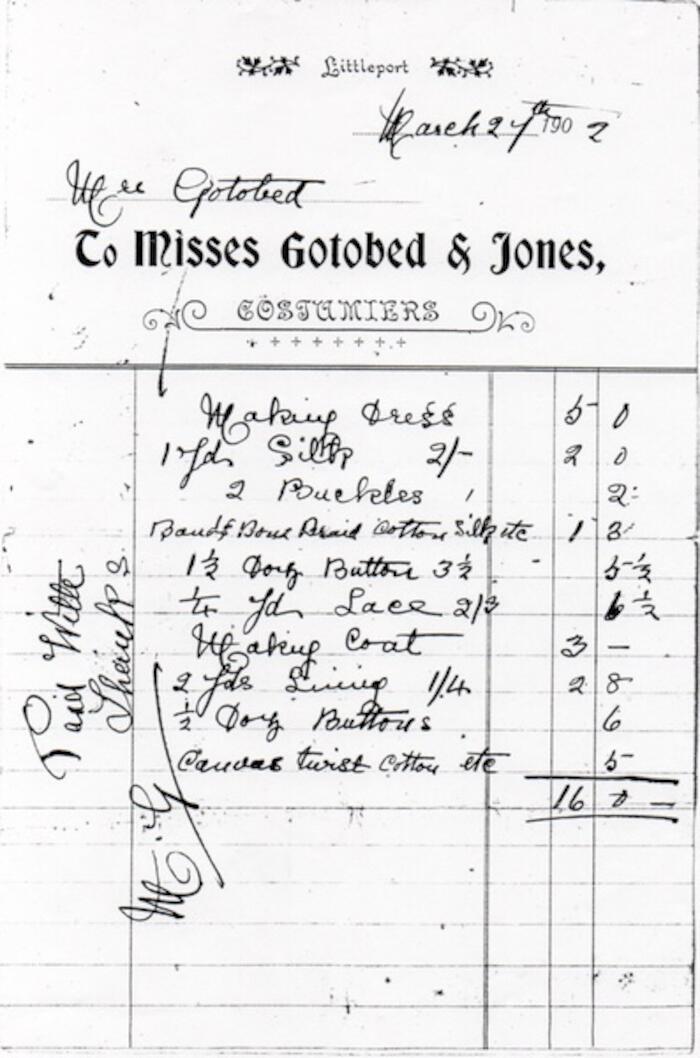 Littleport
March 27th 1902
Mrs Gotobed
To Misses Gotobed & Jones,
COSTUMIERS
Making Dress 5 0
1 Yds Silk 2/- 2 0
2 Buckles 2
Band Bone Braid Cotton Silk etc 1 3
1½ Doz Button 3½ 5½
¼ Yd Lace 2/3 6½
Making Coat 3 —
2 Yds Lining 1/4 2 8
½ Doz Buttons 6
Canvas twist Cotton etc 5
16 0 —
Paid With
Thanks
M. G